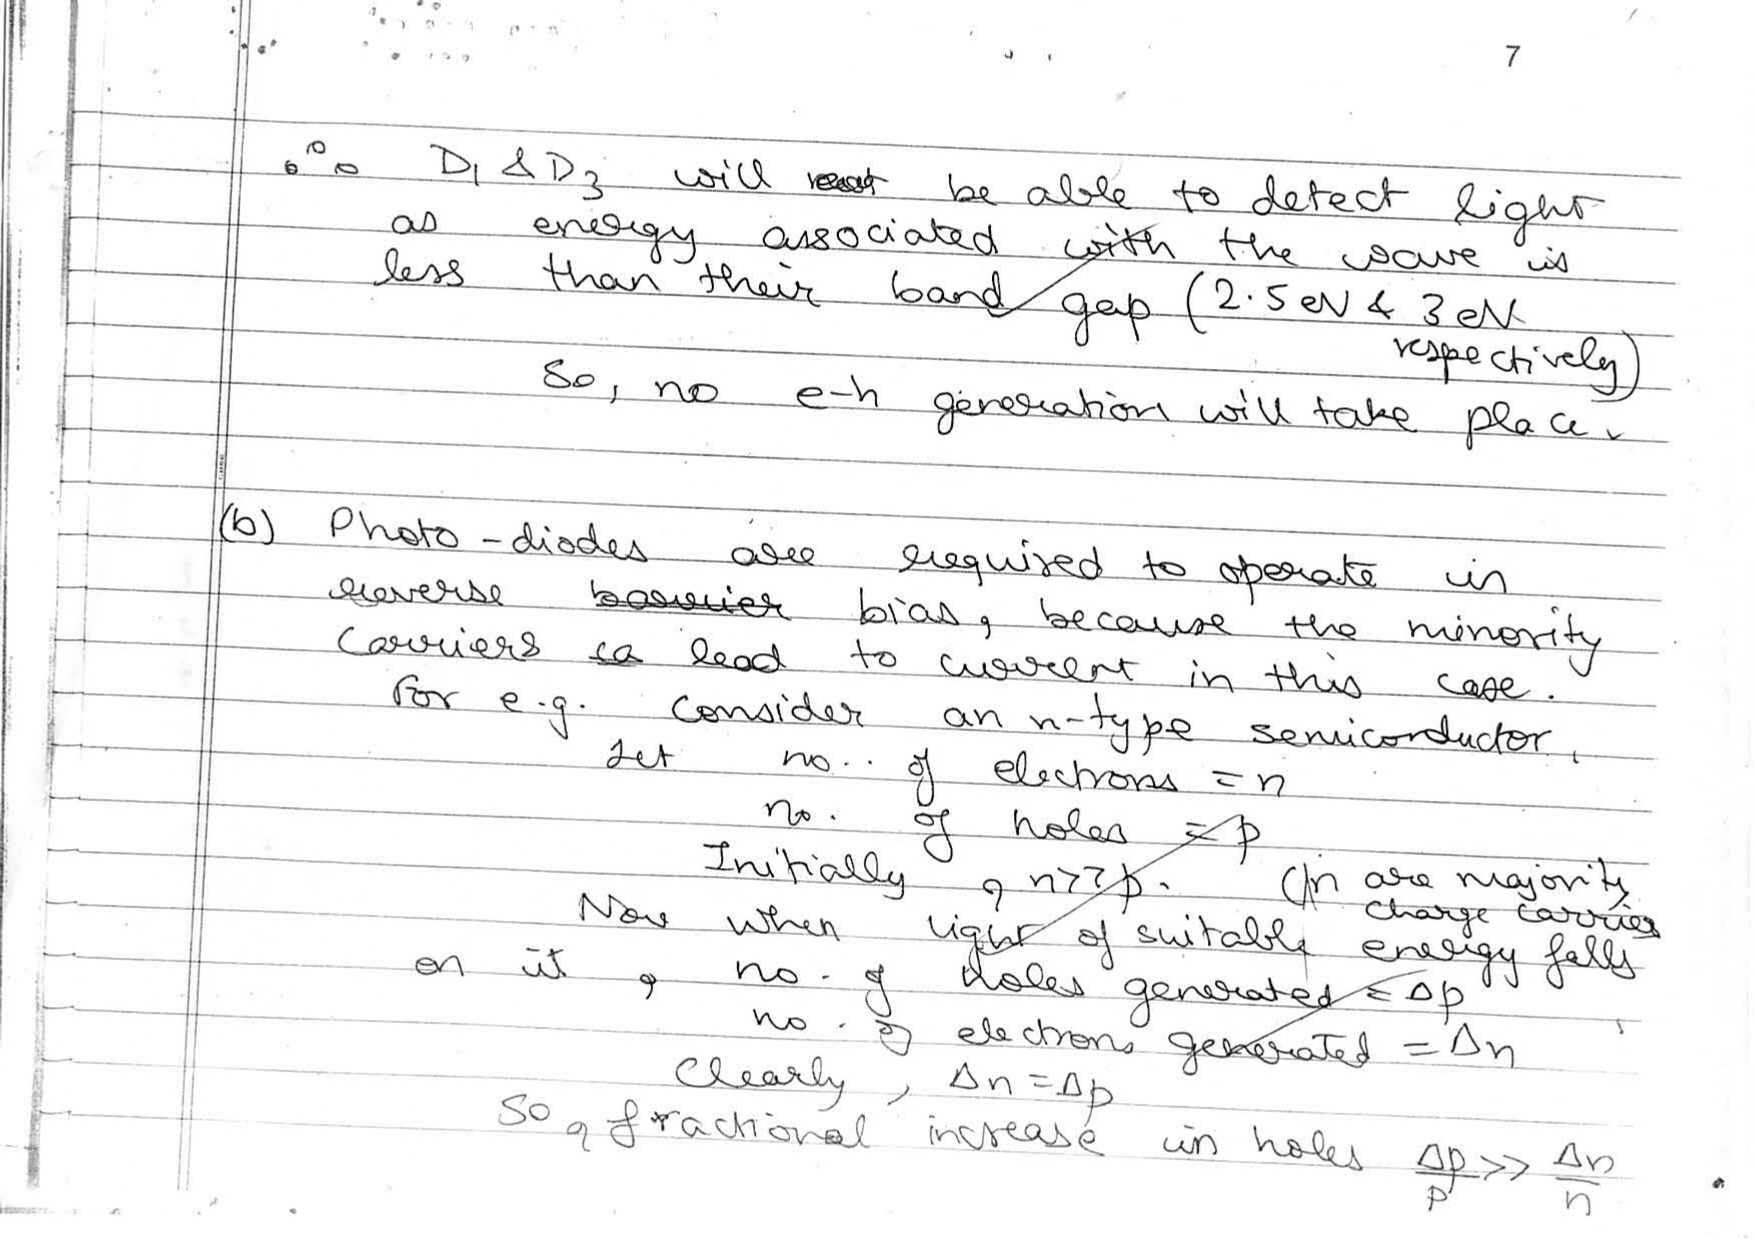 7
∴ D₁ & D₃ will not be able to detect light
as energy associated with the wave is
less than their band gap (2.5 eV & 3 eV
respectively)
So, no e-h generation will take place.
(b) Photo-diodes are required to operate in
reverse barrier bias, because the minority
carriers ca lead to current in this case.
For e.g. Consider an n-type semiconductor,
Let no. of electrons = n
no. of holes = p
Initially, n>>p. (n are majority
charge carrier
Now when light of suitable energy falls
on it, no. of holes generated = Δp
no. of electrons generated = Δn
Clearly, Δn = Δp
So, fractional increase in holes Δp/p >> Δn/n